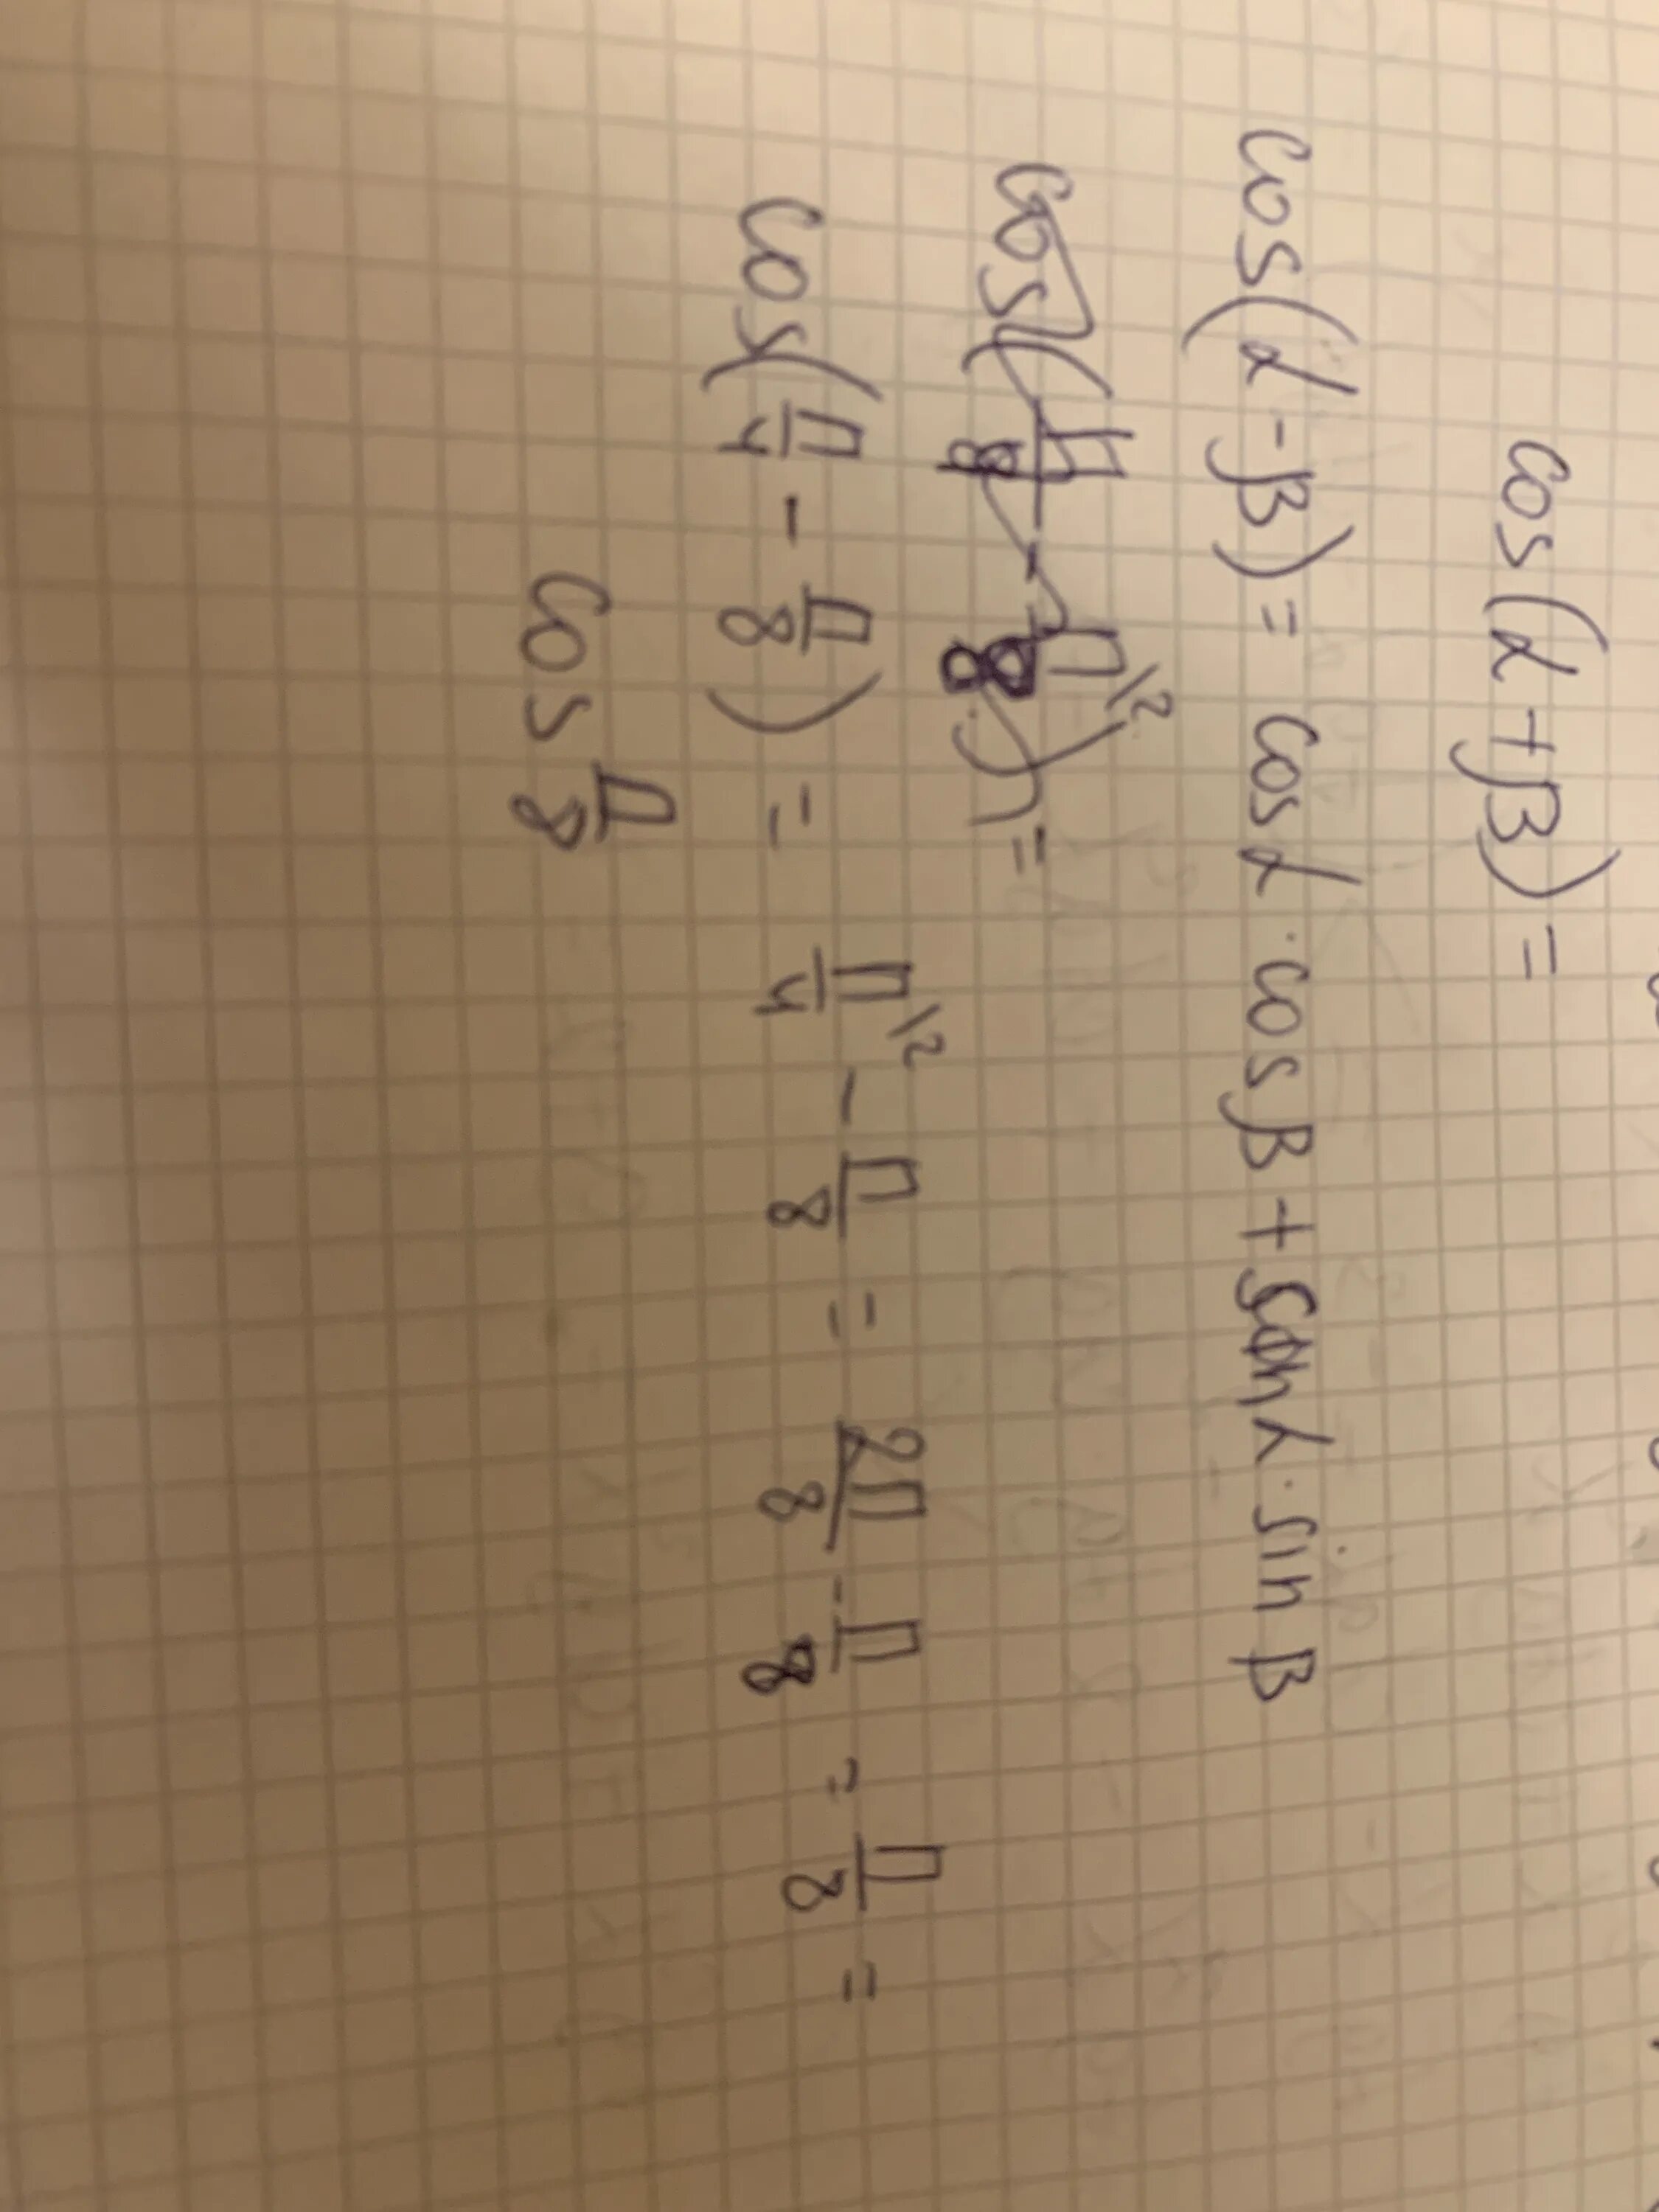 cos(α+β)=
cos(α-β)= cosα·cosβ+sinα·sinβ
cos(π/4 - π/8) = π/4\2 - π/8 = 2π/8 - π/8 = π/8 =
cos π/8